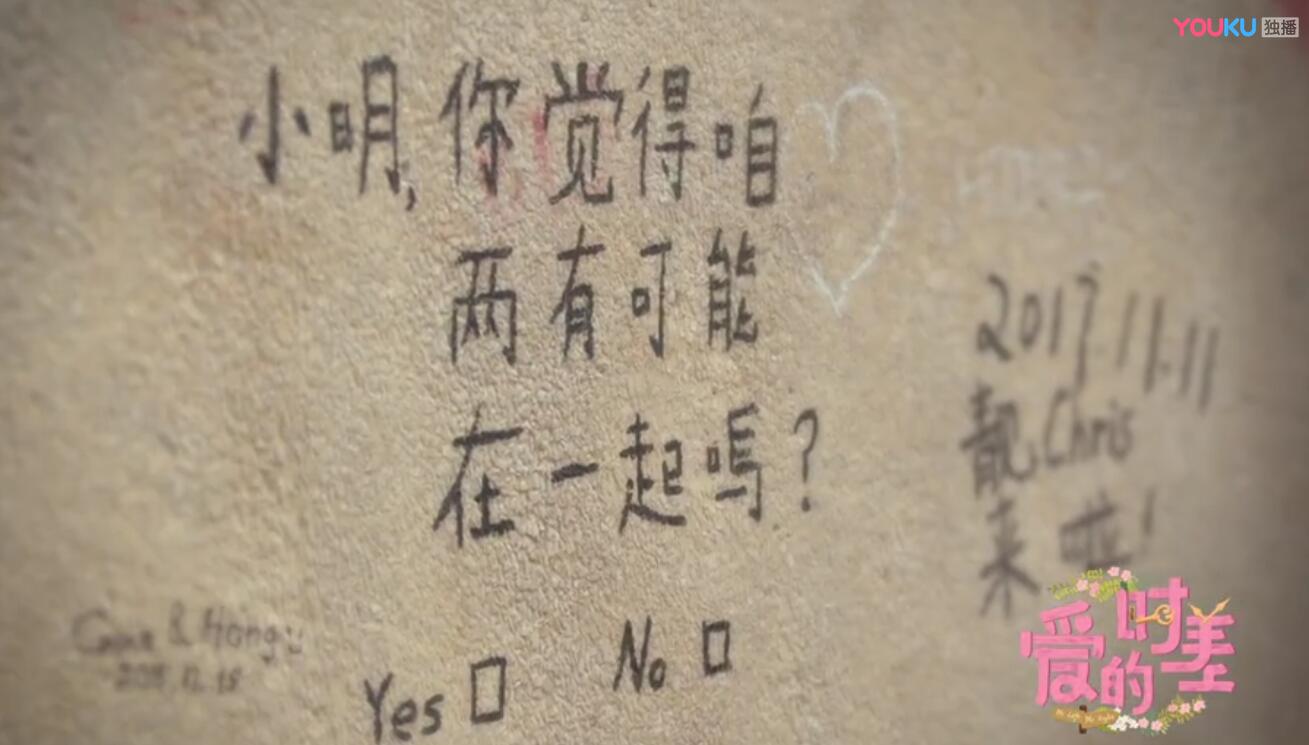 YOUKU 独播
小明,你觉得咱
两有可能
在一起嗎?
2017.11.11
靓Chris
来啦!
Yes
No
爱的时差